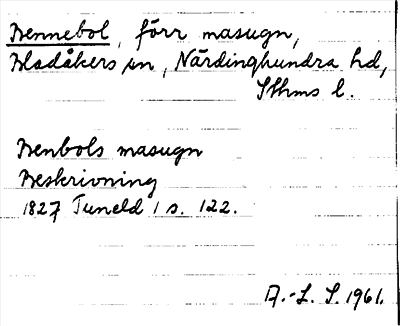 Bennebol, förr masugn,
Bladåkers sn, Närdinghundra hd,
Sthms l.
Benbols masugn
Beskrivning
1827 Tuneld 1 s. 122.
A.-L. S. 1961.